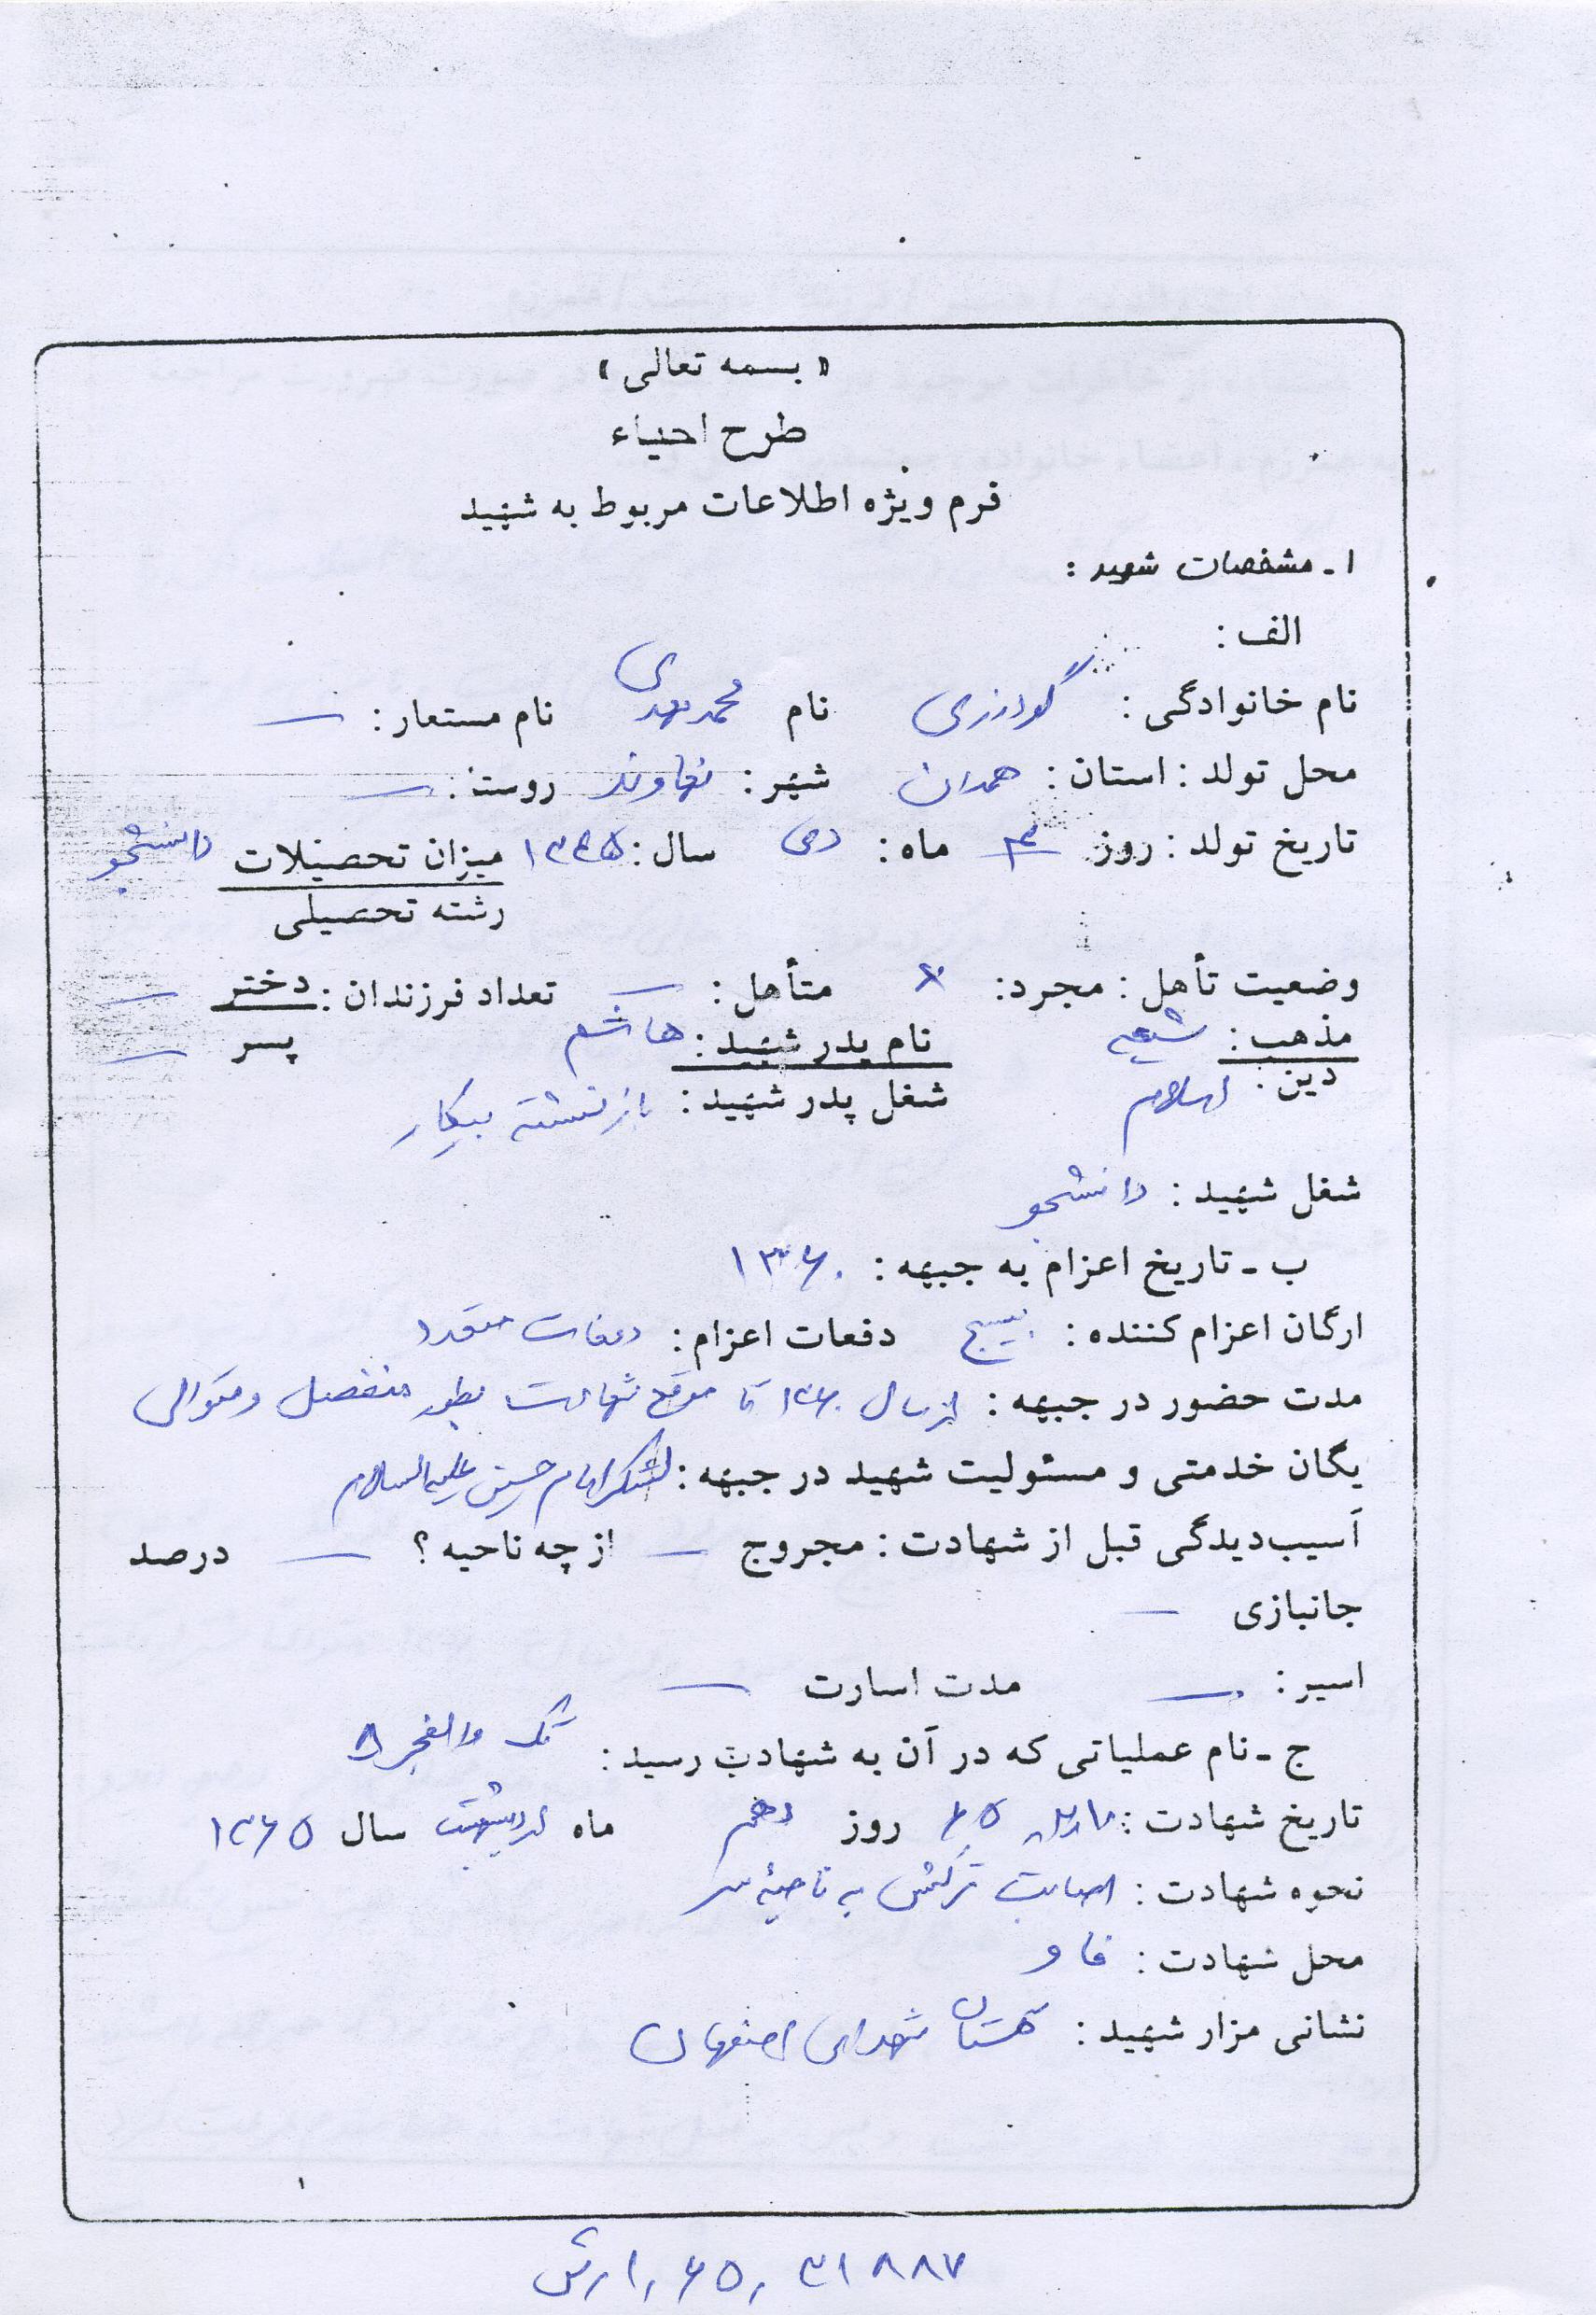 « بسمه تعالی »
طرح احیاء
فرم ویژه اطلاعات مربوط به شهید
۱ ـ مشخصات شهید :
الف :
نام خانوادگی : گودرزی نام محمدمهدی نام مستعار : —
محل تولد : استان : همدان شهر : نهاوند روستا : —
تاریخ تولد : روز ۳ ماه : دی سال : ۱۳۴۵ میزان تحصیلات دانشجو
رشته تحصیلی
وضعیت تأهل : مجرد : × متأهل : — تعداد فرزندان : دختر —
مذهب : شیعه نام پدر شهید : هاشم پسر —
دین : اسلام شغل پدر شهید : بازنشسته بیکار
شغل شهید : دانشجو
ب ـ تاریخ اعزام به جبهه : ۱۳۶۰
ارگان اعزام کننده : بسیج دفعات اعزام : دفعات متعدد
مدت حضور در جبهه : از سال ۱۳۶۰ تا موقع شهادت بطور منفصل و متوالی
یگان خدمتی و مسئولیت شهید در جبهه : لشکر امام حسین علیه السلام
آسیب‌دیدگی قبل از شهادت : مجروح — از چه ناحیه ؟ — درصد
جانبازی —
اسیر : — مدت اسارت —
ج ـ نام عملیاتی که در آن به شهادت رسید : تک والفجر ۸
تاریخ شهادت : ۶۵ روز دهم ماه اردیبهشت سال ۱۳۶۵
نحوه شهادت : اصابت ترکش به ناحیهٔ سر
محل شهادت : فاو
نشانی مزار شهید : گلستان شهدای اصفهان
۱